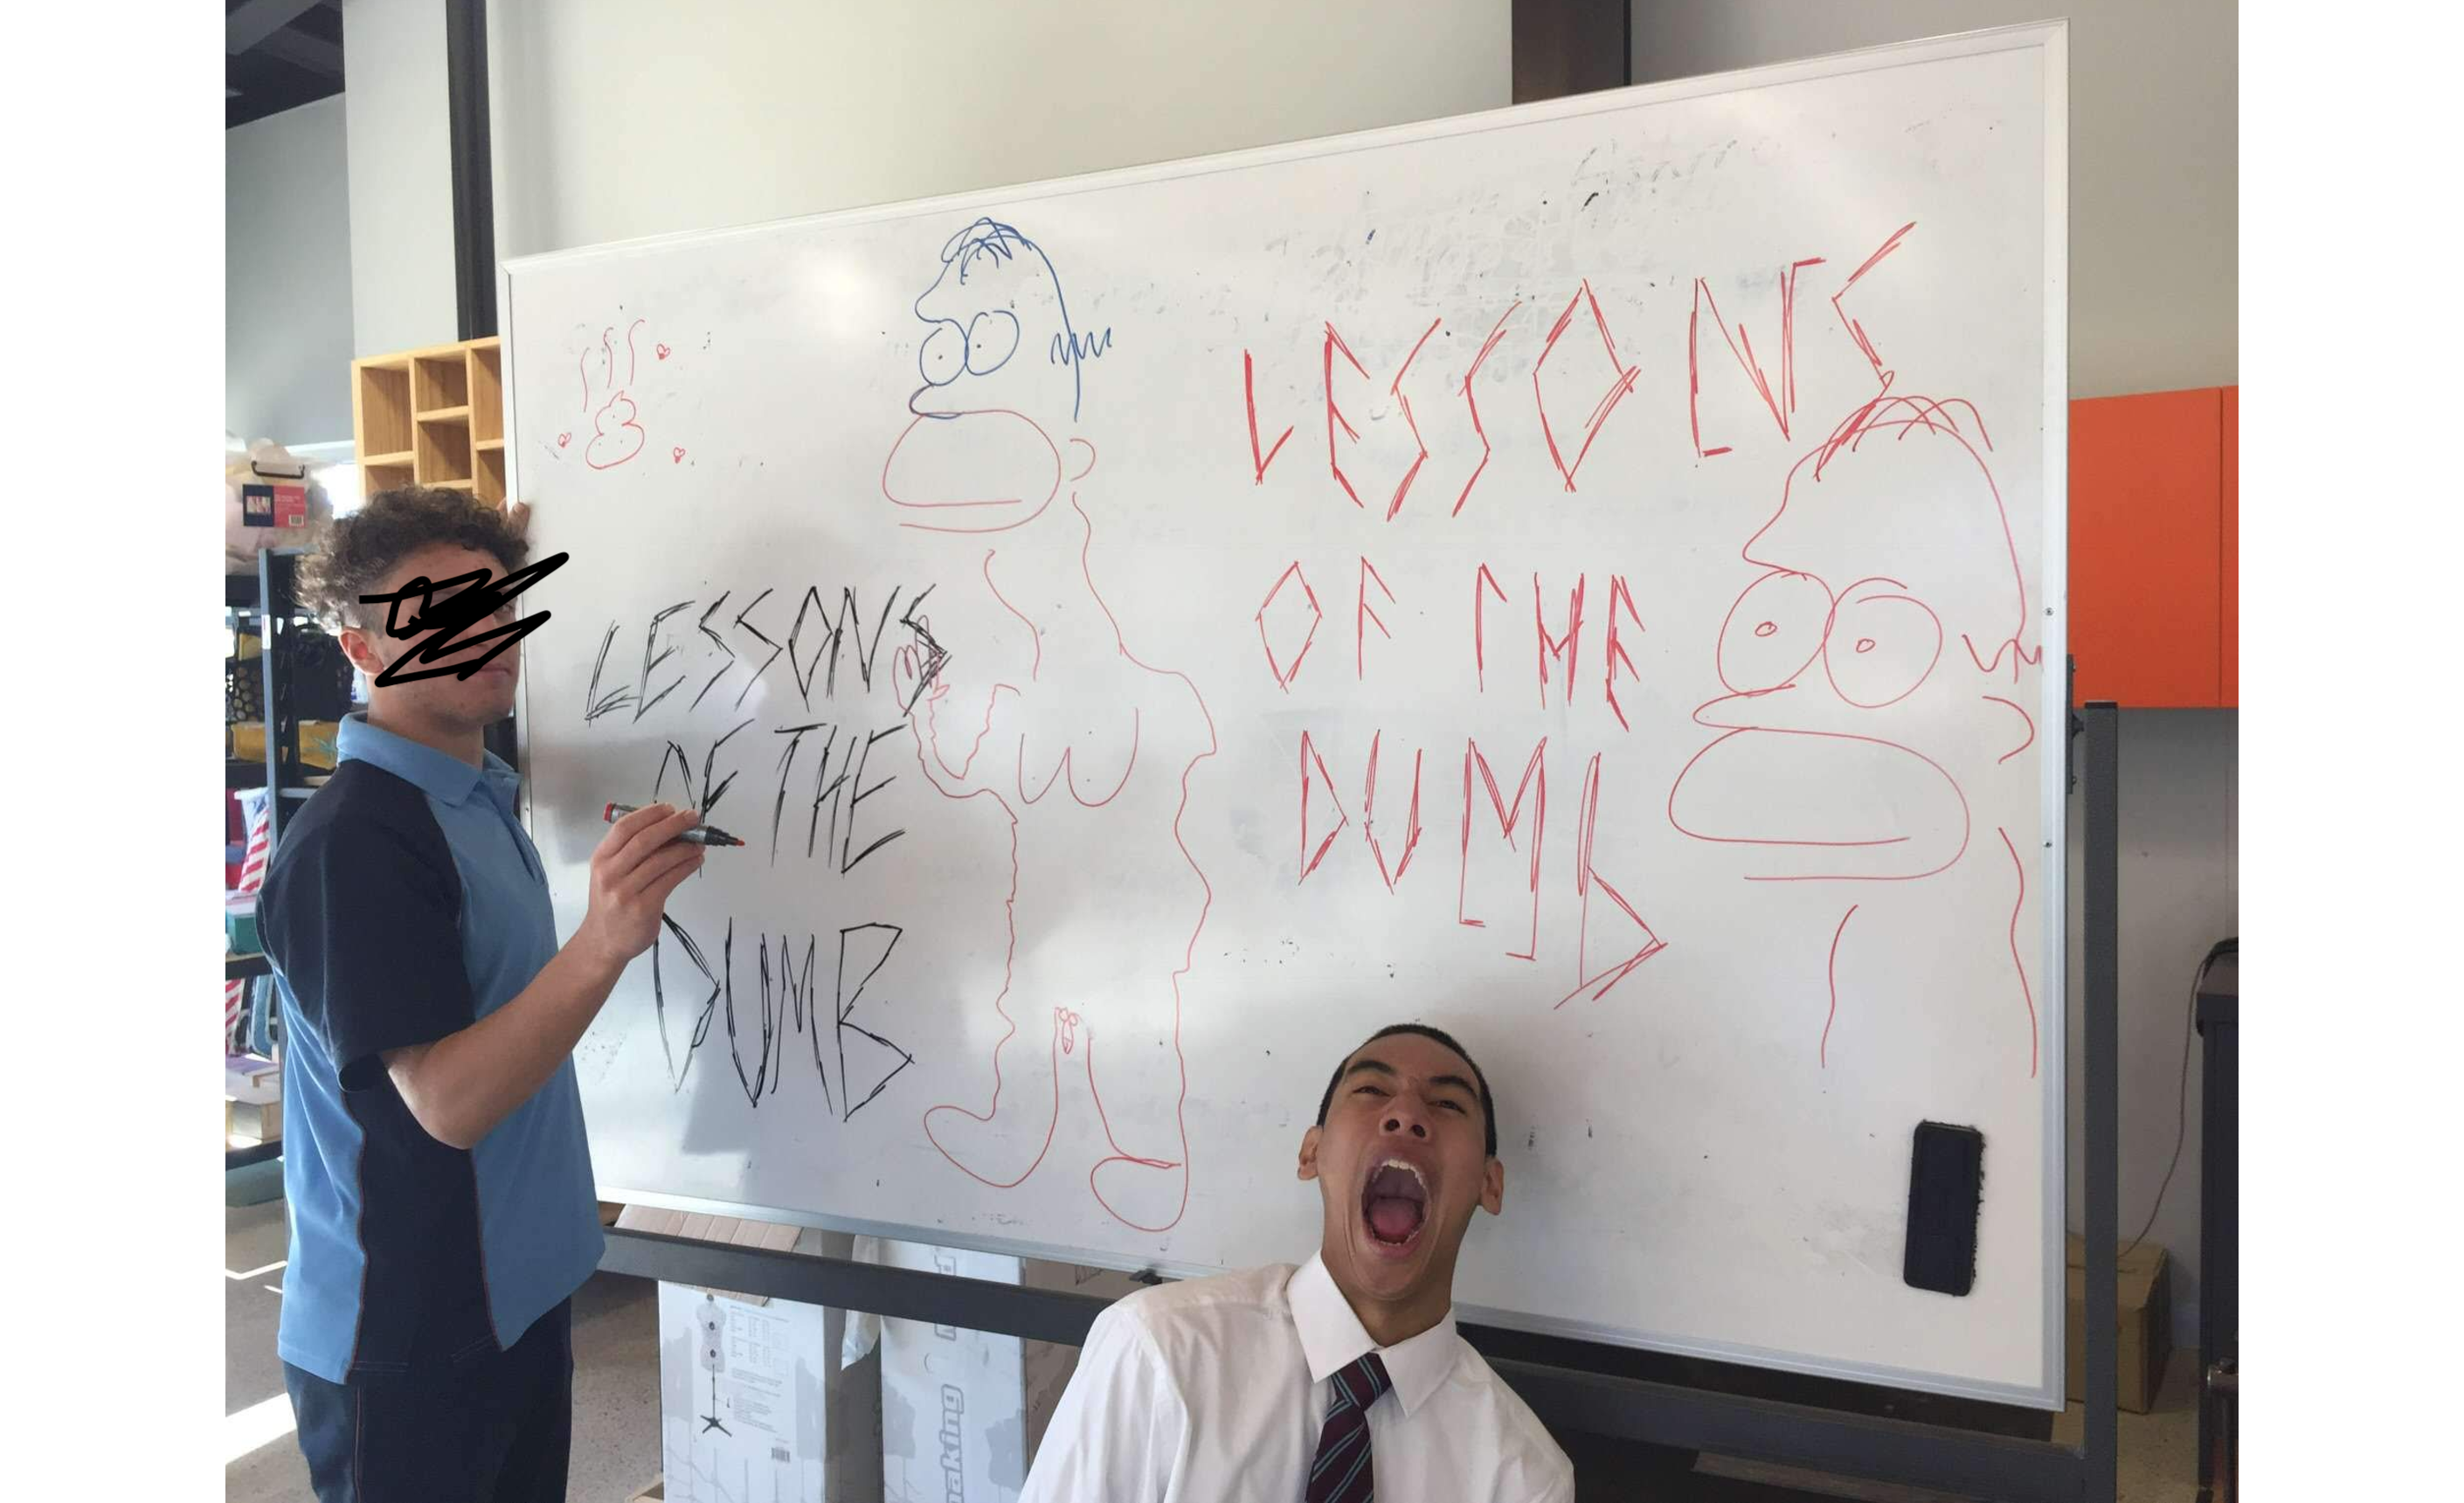 LESSONS
OF THE
DUMB
LESSONS
OF THE
DUMB
making